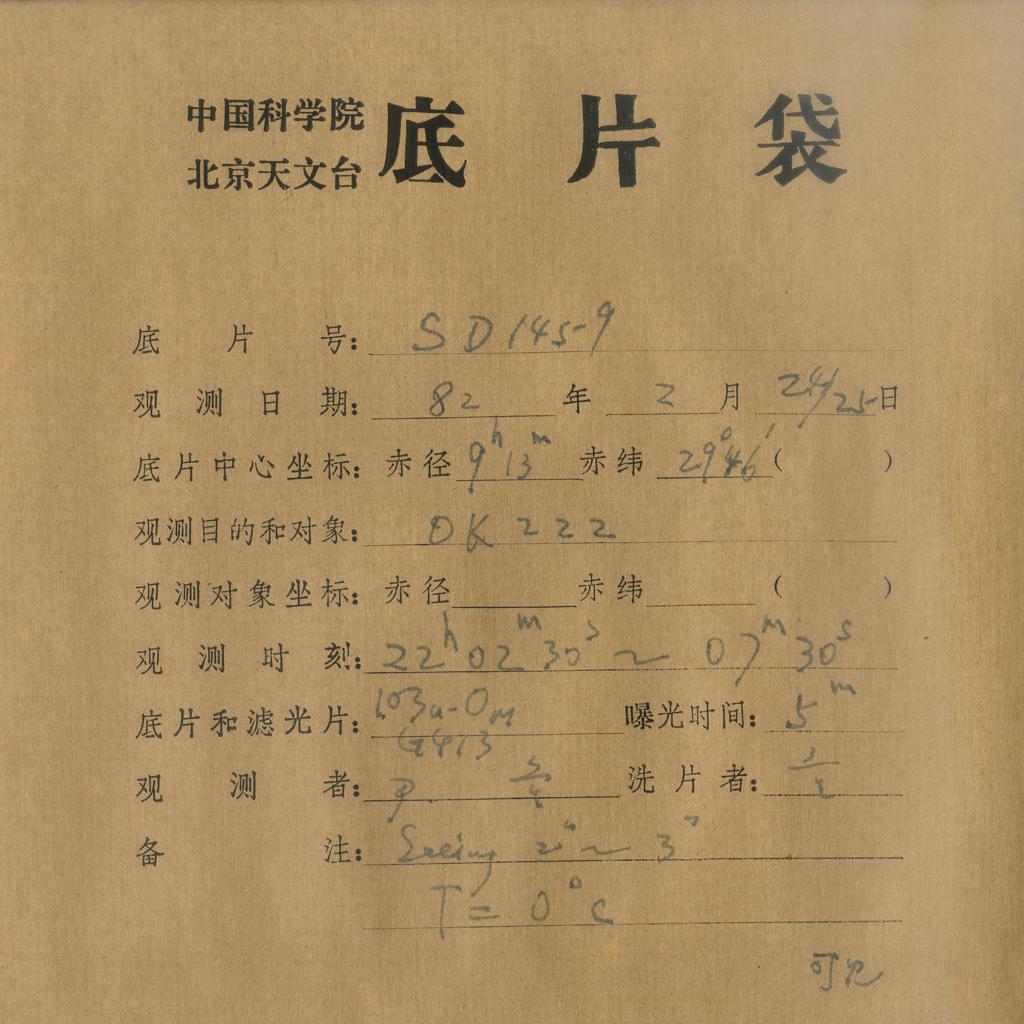 中国科学院
北京天文台
底片袋
底片号: SD145-9
观测日期: 82年 2月 24/25日
底片中心坐标: 赤径 9h13m 赤纬 29°46′( )
观测目的和对象: OK 222
观测对象坐标: 赤径 赤纬 ( )
观测时刻: 22h02m30s ~ 07m30s
底片和滤光片: 103a-O 曝光时间: 5m
GG413
观测者: 洗片者:
备注: Seeing 2″~3″
T=0°C